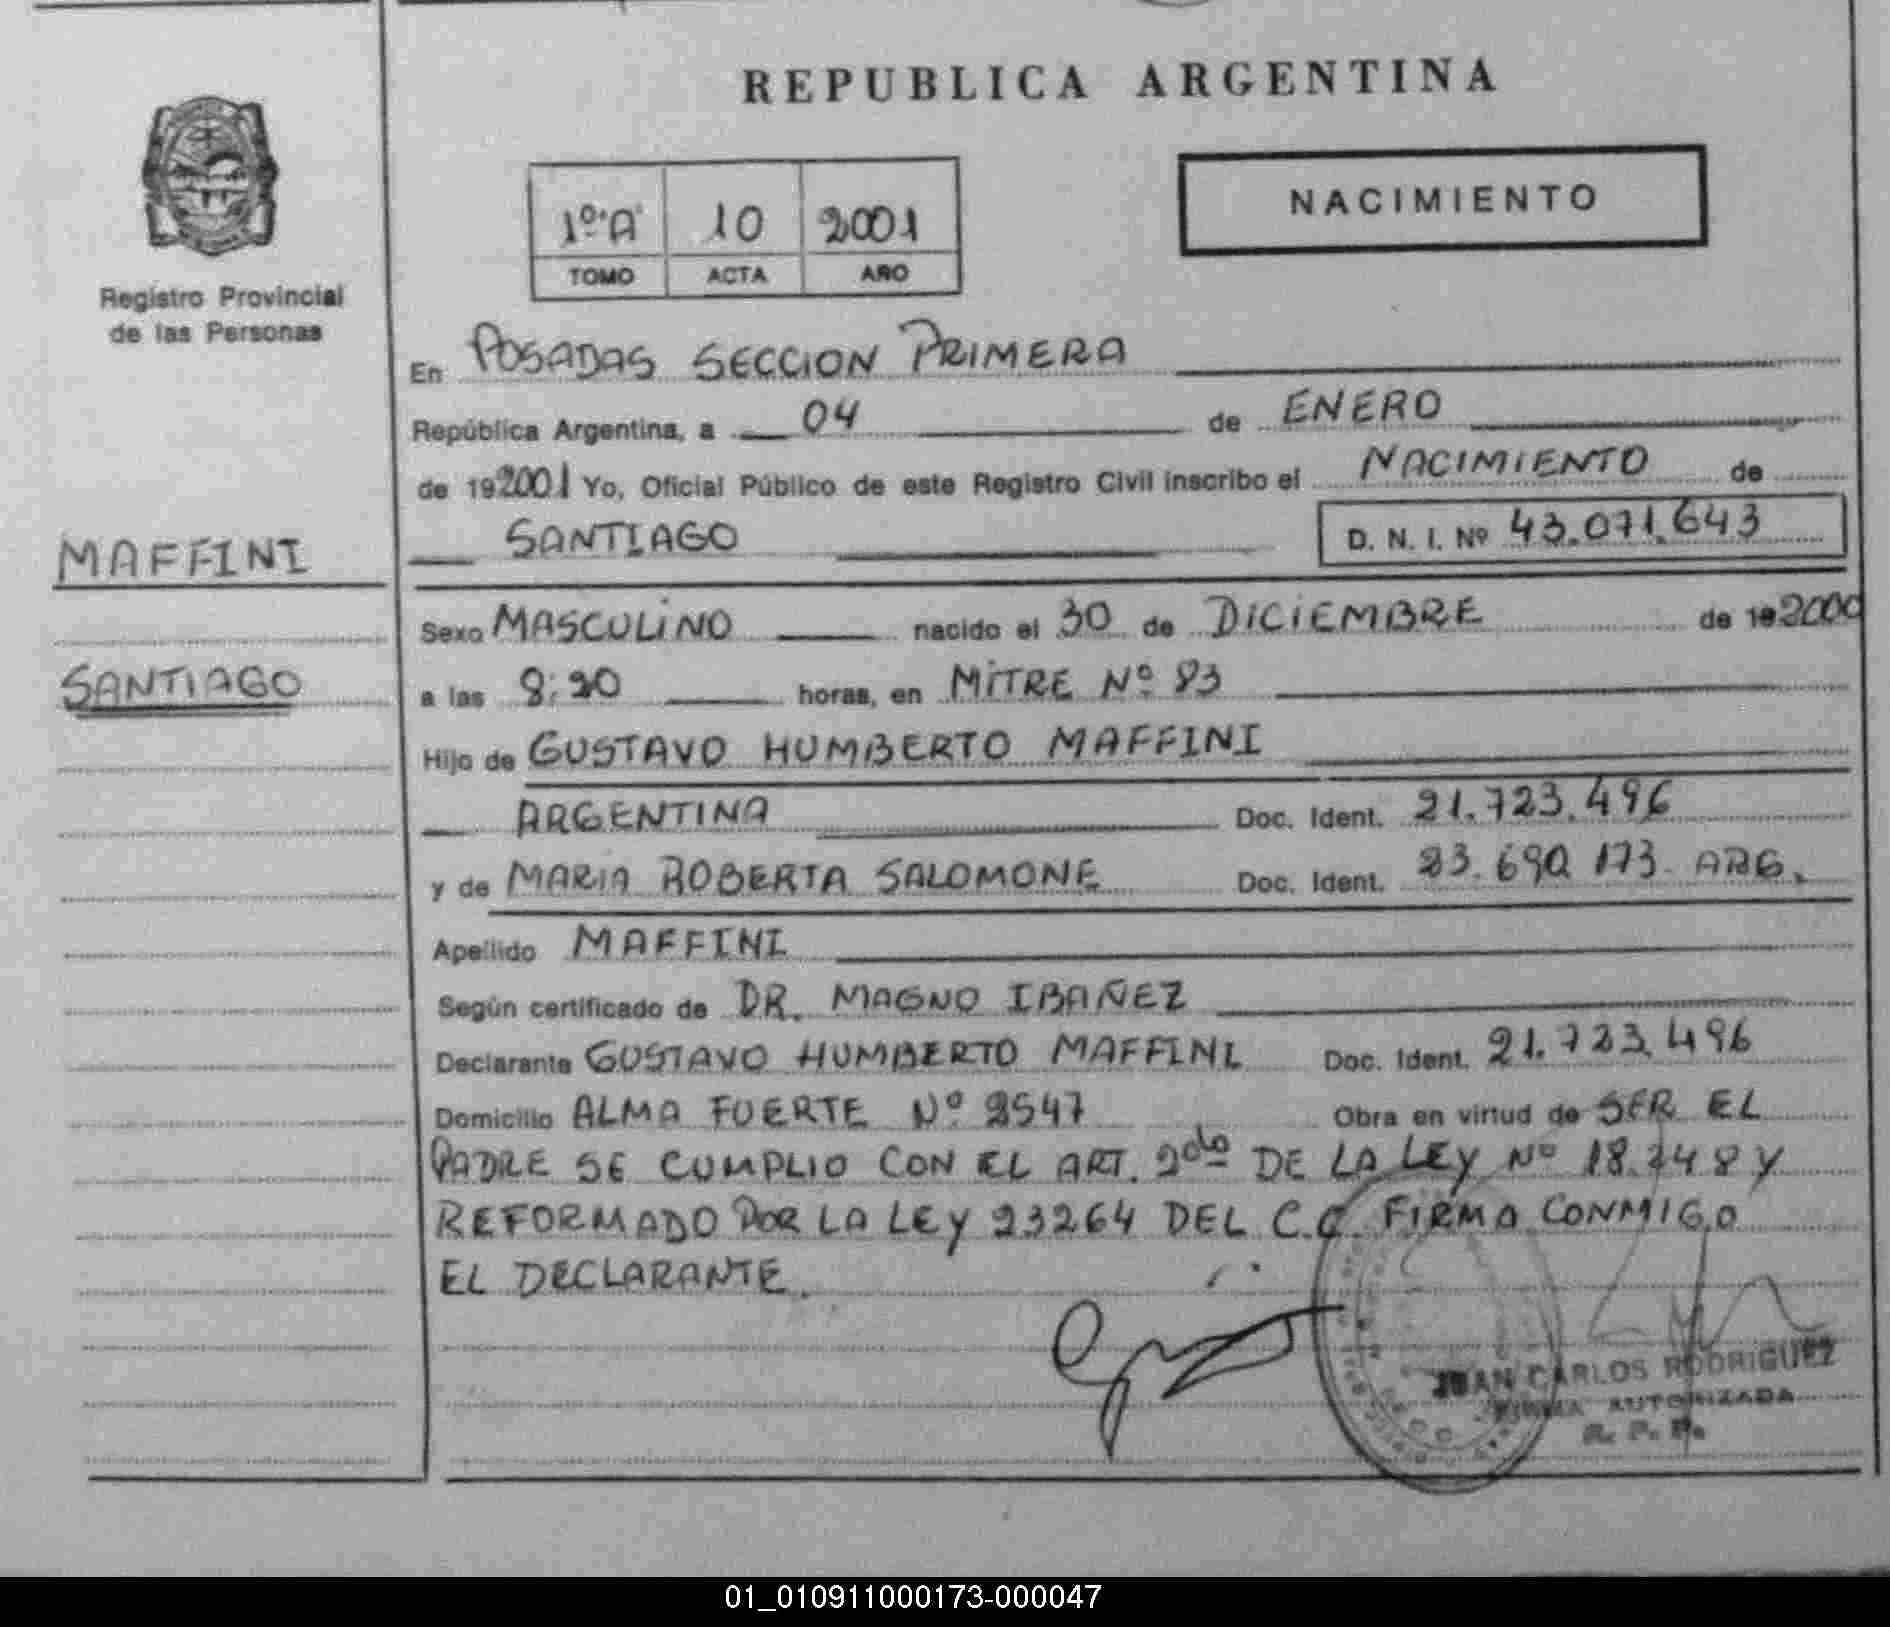 REPUBLICA ARGENTINA
NACIMIENTO
1º "A" 10 2001
TOMO ACTA AÑO
Registro Provincial
de las Personas
En POSADAS SECCION PRIMERA
República Argentina, a 04 de ENERO
de 192001 Yo, Oficial Público de este Registro Civil inscribo el NACIMIENTO de
SANTIAGO D. N. I. Nº 43.071.643
MAFFINI
SANTIAGO
Sexo MASCULINO nacido el 30 de DICIEMBRE de 192000
a las 8:20 horas, en MITRE Nº 83
Hijo de GUSTAVO HUMBERTO MAFFINI
ARGENTINA Doc. Ident. 21.723.496
y de MARIA ROBERTA SALOMONE Doc. Ident. 23.690.173 ARG.
Apellido MAFFINI
Según certificado de DR. MAGNO IBAÑEZ
Declarante GUSTAVO HUMBERTO MAFFINI Doc. Ident. 21.723.496
Domicilio ALMA FUERTE Nº 2547 Obra en virtud de SER EL
PADRE SE CUMPLIO CON EL ART. 2do DE LA LEY Nº 18.248 Y
REFORMADO POR LA LEY 23264 DEL C.C. FIRMA CONMIGO
EL DECLARANTE.
JUAN CARLOS RODRIGUEZ
FIRMA AUTORIZADA
R. P. P.
01_010911000173-000047